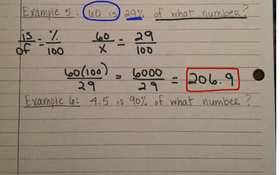 Example 5: 60 is 29% of what number?
is/of = %/100   60/x = 29/100
60(100)/29 = 6000/29 = 206.9
Example 6: 4.5 is 90% of what number?